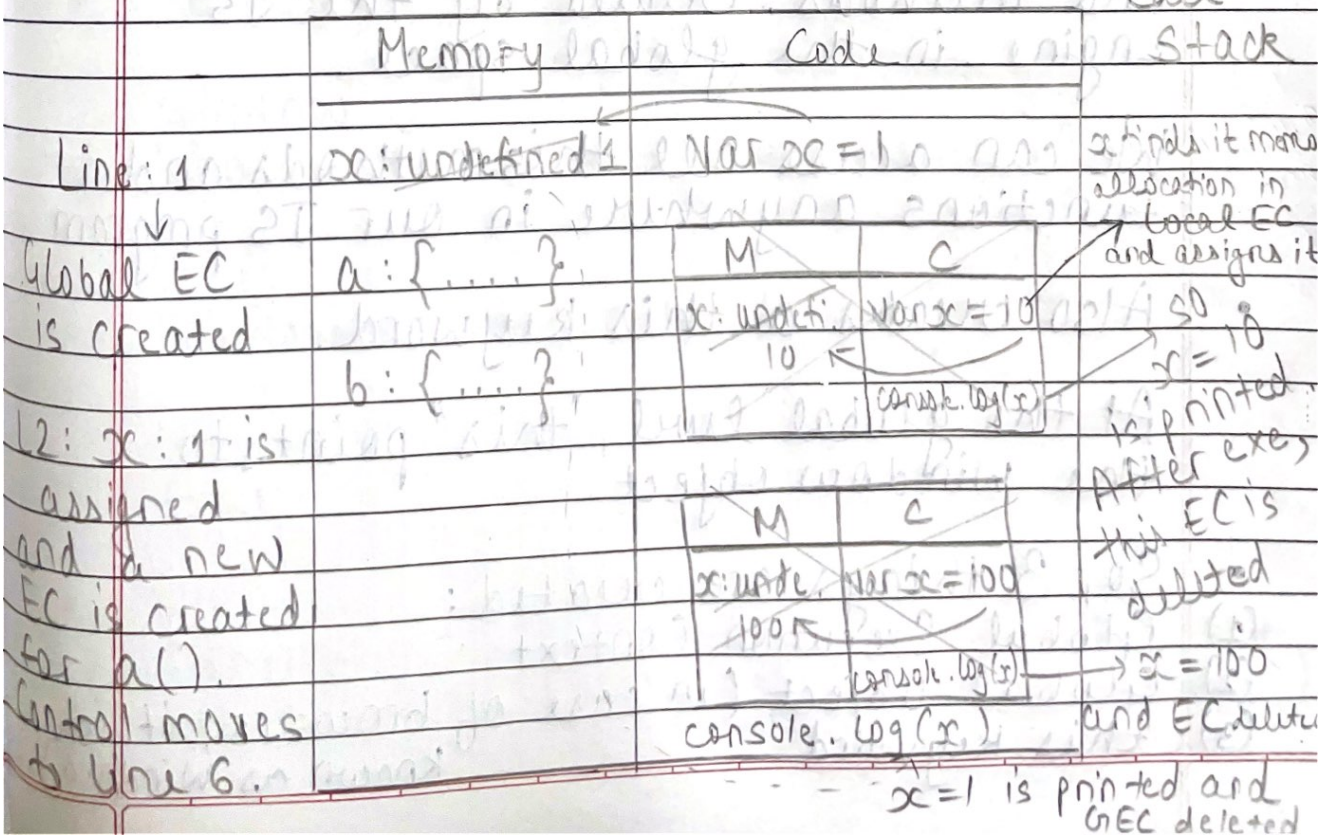 Memory Code Stack
Line: 1 x: undefined 1 var x = 1
↓
Global EC
is created
a: {.....}
b: {.....}
L2: x: 1 is
assigned
and a new
EC is created
for a().
Control moves
to line 6.
M C
x: undefi. var x = 10
10
console.log(x)
M C
x: unde. var x = 100
100
console.log(x)
console.log(x)
x finds it
allocation in
local EC
and assigns it
so
x = 10
is printed.
After exe,
this EC is
deleted
x = 100
and EC
x = 1 is printed and
GEC deleted